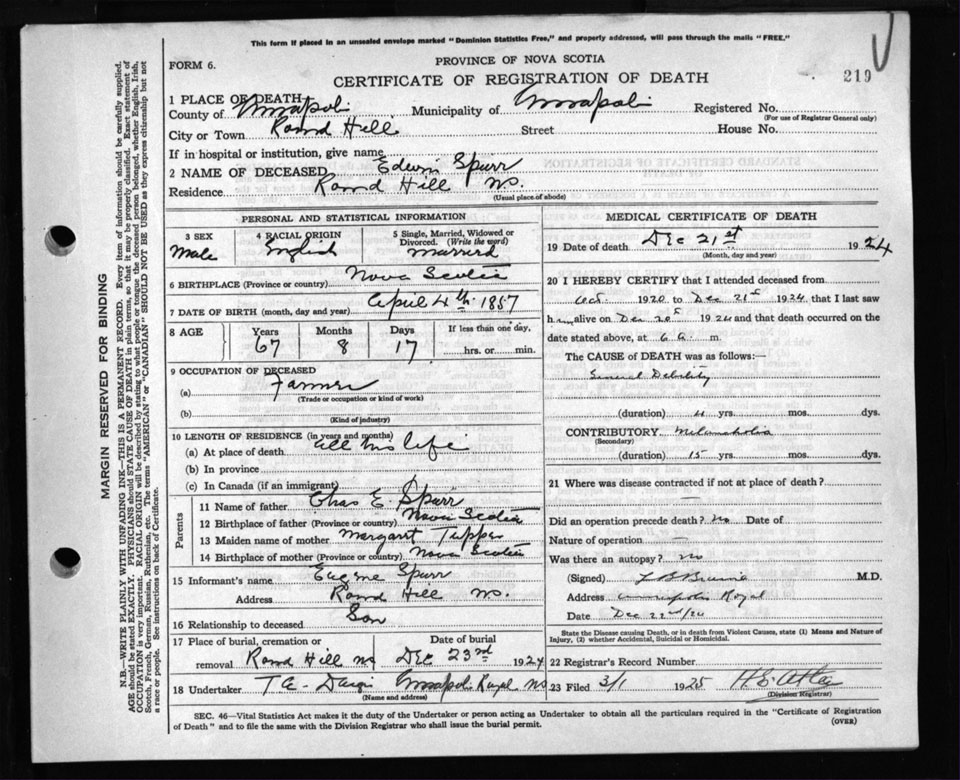 This form if placed in an unsealed envelope marked "Dominion Statistics Free," and properly addressed, will pass through the mails "FREE."
PROVINCE OF NOVA SCOTIA
FORM 6.
CERTIFICATE OF REGISTRATION OF DEATH
219
1 PLACE OF DEATH
County of Annapolis Municipality of Annapolis Registered No.
(For use of Registrar General only)
City or Town Round Hill Street House No.
If in hospital or institution, give name
2 NAME OF DECEASED Edwin Spurr
Residence Round Hill NS.
(Usual place of abode)
PERSONAL AND STATISTICAL INFORMATION
3 SEX 4 RACIAL ORIGIN 5 Single, Married, Widowed or Divorced. (Write the word)
Male English Married
6 BIRTHPLACE (Province or country) Nova Scotia
7 DATE OF BIRTH (month, day and year) April 4th 1857
8 AGE Years Months Days If less than one day,
67 8 17 hrs. or min.
9 OCCUPATION OF DECEASED
(a) Farmer
(Trade or occupation or kind of work)
(b)
(Kind of industry)
10 LENGTH OF RESIDENCE (in years and months)
(a) At place of death all his life
(b) In province
(c) In Canada (if an immigrant)
Parents
11 Name of father Chas E. Spurr
12 Birthplace of father (Province or country) Nova Scotia
13 Maiden name of mother Margart Tupper
14 Birthplace of mother (Province or country) Nova Scotia
15 Informant's name Eugene Spurr
Address Round Hill NS.
16 Relationship to deceased Son
17 Place of burial, cremation or removal Round Hill NS Date of burial DEC 23rd 1924
18 Undertaker Annapolis Royal NS
(Name and address)
MEDICAL CERTIFICATE OF DEATH
19 Date of death Dec 21st 1924
(Month, day and year)
20 I HEREBY CERTIFY that I attended deceased from
Oct. 1920 to Dec 21st 1924, that I last saw
him alive on Dec 20th 1924 and that death occurred on the
date stated above, at 6 a. m.
The CAUSE of DEATH was as follows:—
General Debility
(duration) 4 yrs. mos. dys.
CONTRIBUTORY Melancholia
(Secondary)
(duration) 15 yrs. mos. dys.
21 Where was disease contracted if not at place of death?
Did an operation precede death? No Date of
Nature of operation —
Was there an autopsy? No
(Signed) M.D.
Address Annapolis Royal
Date Dec 22nd/24
State the Disease causing Death, or in death from Violent Causes, state (1) Means and Nature of Injury, (2) whether Accidental, Suicidal or Homicidal.
22 Registrar's Record Number
23 Filed 3/1 1925
(Division Registrar)
SEC. 46—Vital Statistics Act makes it the duty of the Undertaker or person acting as Undertaker to obtain all the particulars required in the "Certificate of Registration
of Death" and to file the same with the Division Registrar who shall issue the burial permit.
(OVER)
MARGIN RESERVED FOR BINDING
N.B.—WRITE PLAINLY WITH UNFADING INK—THIS IS A PERMANENT RECORD. Every item of information should be carefully supplied.
AGE should be stated EXACTLY. PHYSICIANS should STATE CAUSE OF DEATH in plain terms, so that it may be properly classified. Exact statement of
OCCUPATION is very important. RACIAL ORIGIN will be described by stating to what people or tongue the deceased person belonged, whether English, Irish,
Scotch, French, German, Russian, Ruthenian, etc. The terms "AMERICAN" or "CANADIAN" SHOULD NOT BE USED as they express citizenship but not
a race or people. See instructions on back of Certificate.